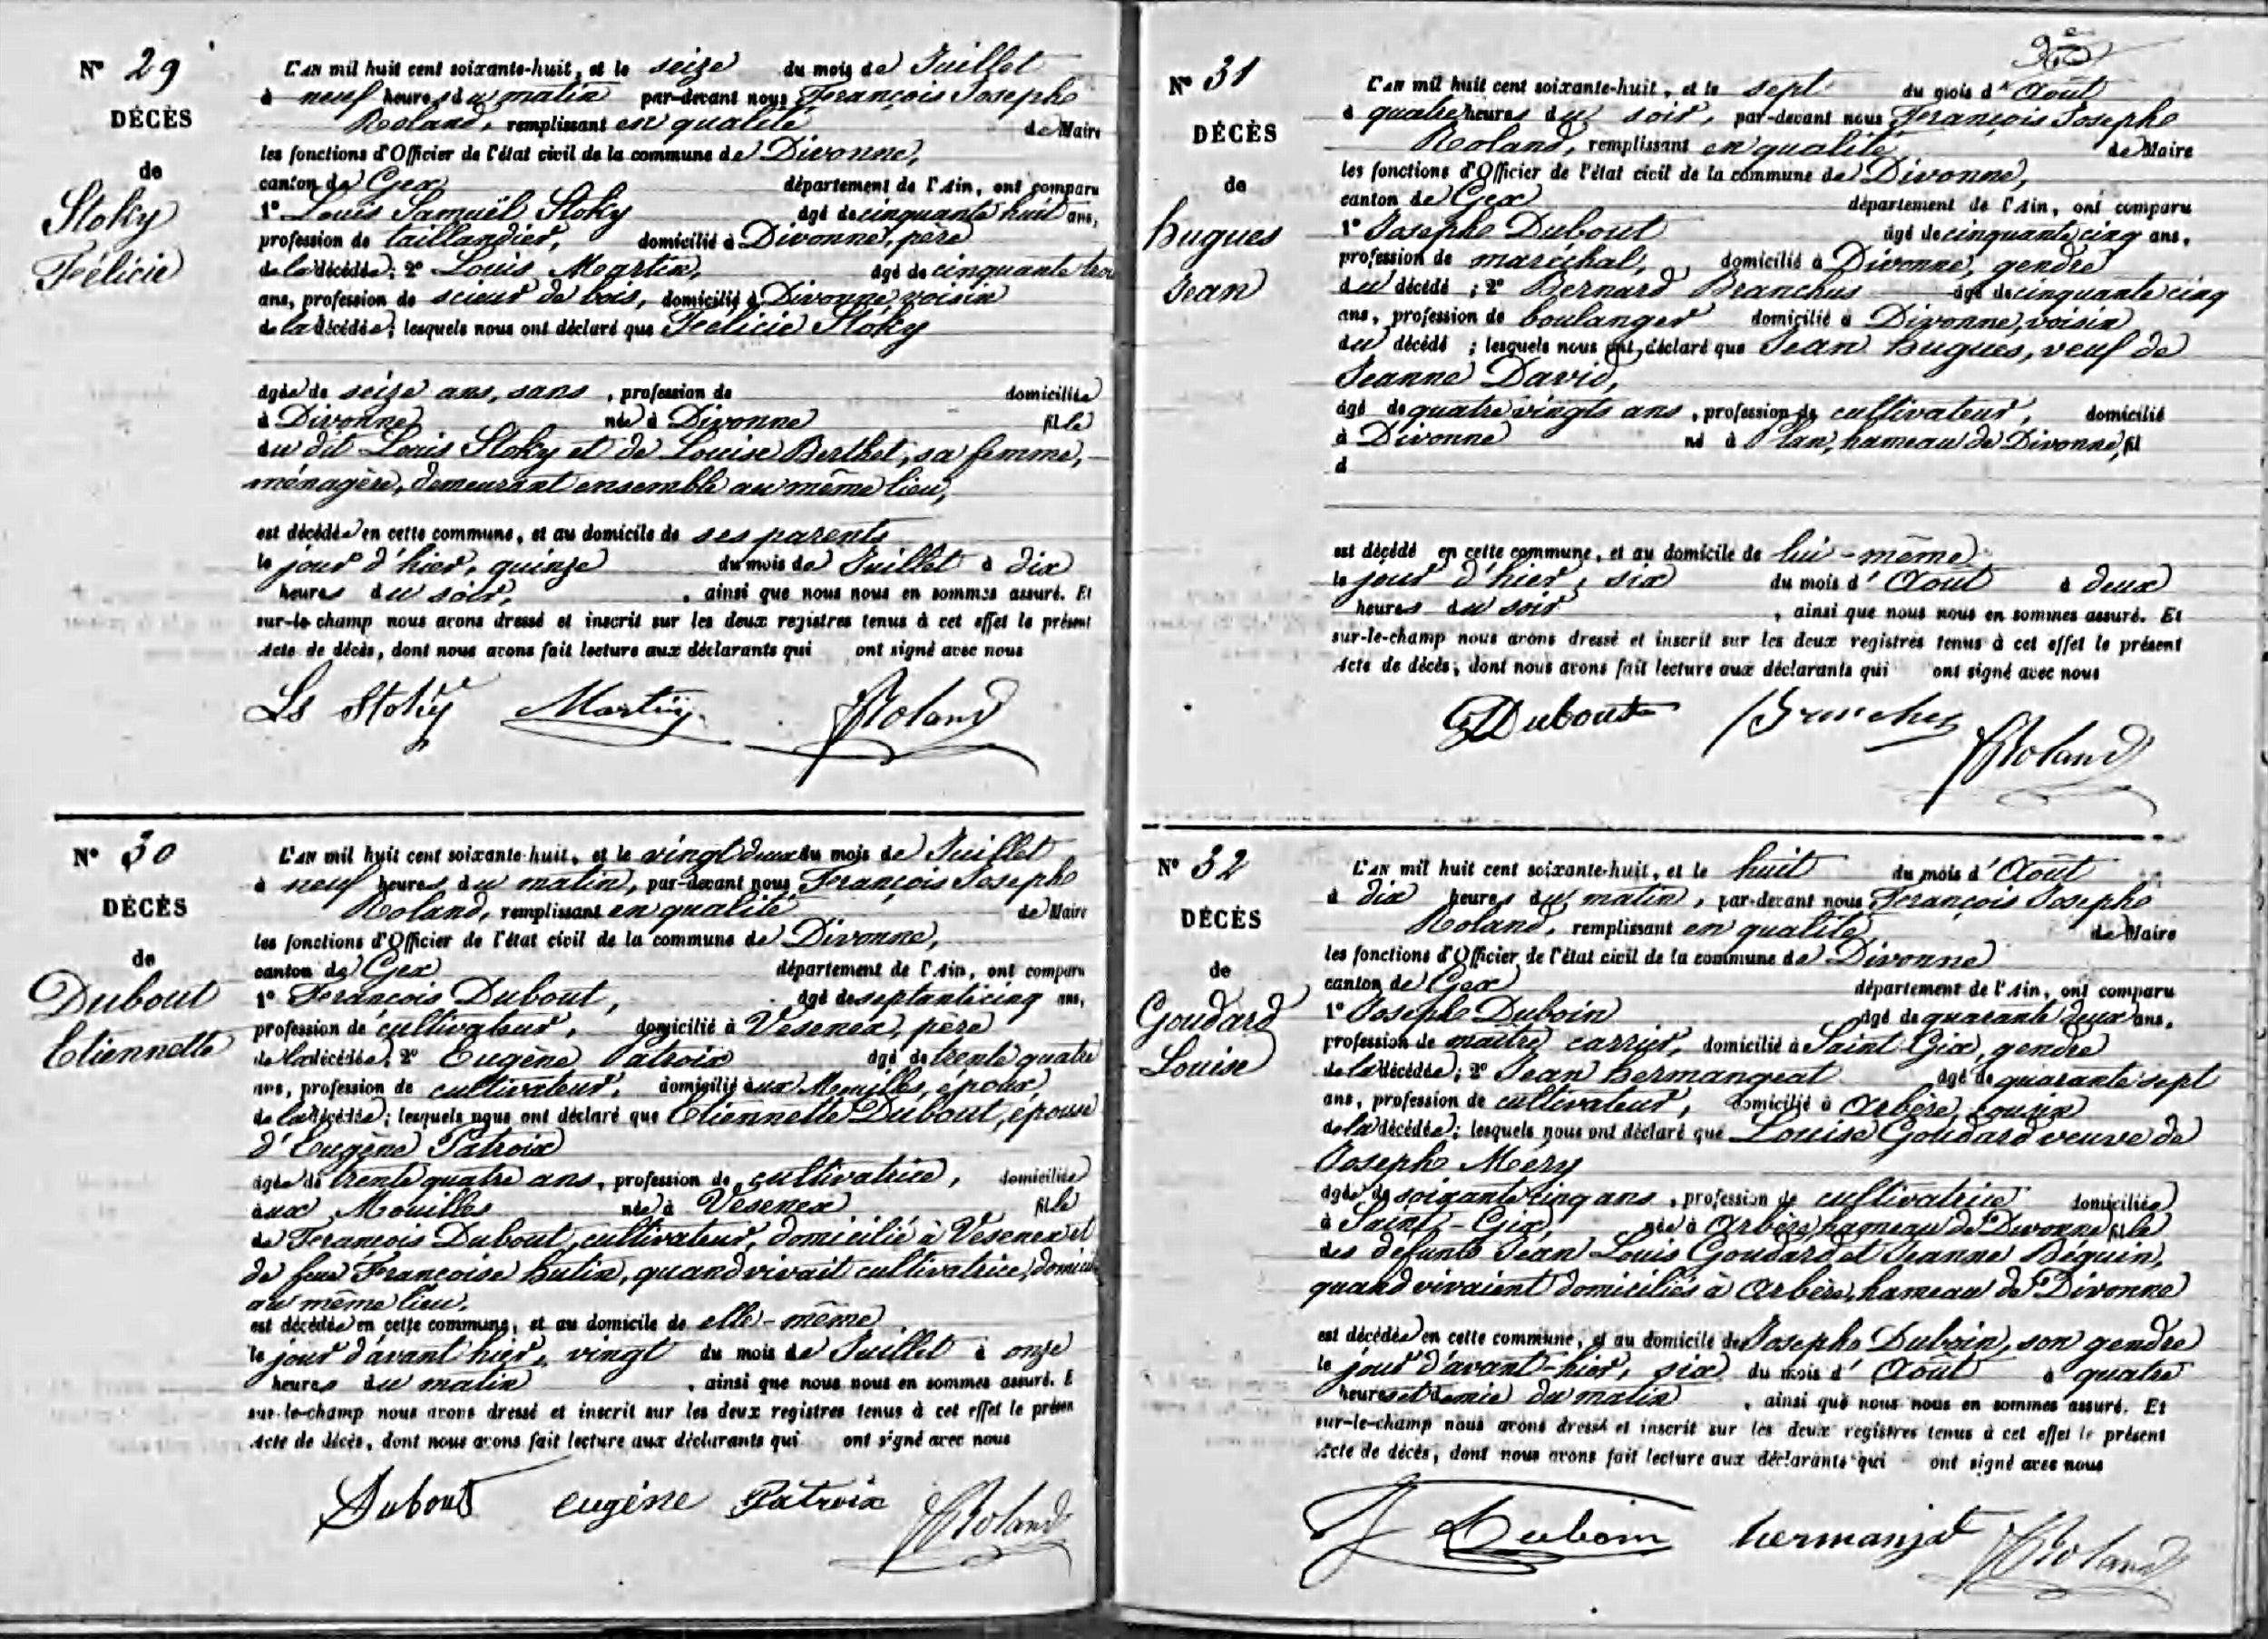 N° 29
DÉCÈS
de
Stoky
Félicie
L'AN mil huit cent soixante-huit, et le seize du mois de Juillet
à neuf heures du matin par-devant nous François Joseph
Roland, remplissant en qualité de Maire
les fonctions d'Officier de l'état civil de la commune de Divonne,
canton de Gex département de l'Ain, ont comparu
1° Louis Samuël Stoky âgé de cinquante huit ans,
profession de taillandier, domicilié à Divonne, père
de la décédée; 2° Louis Martin, âgé de cinquante trois
ans, profession de scieur de bois, domicilié à Divonne, voisin
de la décédée; lesquels nous ont déclaré que Félicie Stoky
âgée de seize ans, sans , profession de domiciliée
à Divonne née à Divonne fille
du dit Louis Stoky et de Louise Berthet, sa femme,
ménagère, demeurant ensemble au même lieu,
est décédée en cette commune, et au domicile de ses parents
le jour d'hier, quinze du mois de Juillet à dix
heures du soir, , ainsi que nous nous en sommes assuré. Et
sur-le-champ nous avons dressé et inscrit sur les deux registres tenus à cet effet le présent
Acte de décès, dont nous avons fait lecture aux déclarants qui ont signé avec nous
Ls Stoky Martin Roland
N° 30
DÉCÈS
de
Dubout
Etiennette
L'AN mil huit cent soixante-huit, et le vingt deux du mois de Juillet
à neuf heures du matin, par-devant nous François Joseph
Roland, remplissant en qualité de Maire
les fonctions d'Officier de l'état civil de la commune de Divonne,
canton de Gex département de l'Ain, ont comparu
1° François Dubout, âgé de septante cinq ans,
profession de cultivateur, domicilié à Vesenex, père
de la décédée; 2° Eugène Patroix âgé de trente quatre
ans, profession de cultivateur, domicilié aux Mouilles, époux
de la décédée; lesquels nous ont déclaré que Etiennette Dubout, épouse
d'Eugène Patroix
âgée de trente quatre ans, profession de cultivatrice, domiciliée
aux Mouilles née à Vesenex fille
de François Dubout, cultivateur, domicilié à Vesenex et
de feue Françoise hutin, quand vivait cultivatrice, domicil
au même lieu,
est décédée en cette commune, et au domicile de elle-même
le jour d'avant hier, vingt du mois de Juillet à onze
heures du matin , ainsi que nous nous en sommes assuré. E
sur-le-champ nous avons dressé et inscrit sur les deux registres tenus à cet effet le présen
Acte de décès, dont nous avons fait lecture aux déclarants qui ont signé avec nous
Dubout eugène Patroix Roland
N° 31
DÉCÈS
de
hugues
Jean
L'AN mil huit cent soixante-huit, et le sept du mois d'Août
à quatre heures du soir, par-devant nous François Joseph
Roland, remplissant en qualité de Maire
les fonctions d'Officier de l'état civil de la commune de Divonne,
canton de Gex département de l'Ain, ont comparu
1° Joseph Dubout âgé de cinquante cinq ans,
profession de maréchal, domicilié à Divonne, gendre
du décédé ; 2° Bernard Branchus âgé de cinquante cinq
ans, profession de boulanger domicilié à Divonne, voisin
du décédé ; lesquels nous ont déclaré que Jean hugues, veuf de
Jeanne David,
âgé de quatre vingts ans , profession de cultivateur, domicilié
à Divonne né à Plan, hameau de Divonne, fil
d
est décédé en cette commune, et au domicile de lui-même
le jour d'hier, six du mois d'Août à deux
heures du soir , ainsi que nous nous en sommes assuré. Et
sur-le-champ nous avons dressé et inscrit sur les deux registres tenus à cet effet le présent
Acte de décès, dont nous avons fait lecture aux déclarants qui ont signé avec nous
Dubout Roland
N° 32
DÉCÈS
de
Goudard
Louise
L'AN mil huit cent soixante-huit, et le huit du mois d'Août
à dix heures du matin, par-devant nous François Joseph
Roland, remplissant en qualité de Maire
les fonctions d'Officier de l'état civil de la commune de Divonne
canton de Gex département de l'Ain, ont comparu
1° Joseph Duboin âgé de quarante deux ans,
profession de maître carrier, domicilié à Saint-Gix, gendre
de la décédée; 2° Jean hermangeat âgé de quarante sept
ans, profession de cultivateur, domicilié à Arbère, cousin
de la décédée; lesquels nous ont déclaré que Louise Goudard veuve de
Joseph Méry
âgée de soixante cinq ans , profession de cultivatrice domiciliée
à Saint-Gix, née à Arbère, hameau de Divonne fille
des défunts Jean Louis Goudard et Jeanne Béguin,
quand vivaient domiciliés à Arbère, hameau de Divonne
est décédée en cette commune, et au domicile de Joseph Duboin, son gendre
le jour d'avant-hier, six du mois d'Août à quatre
heures et demie du matin , ainsi que nous nous en sommes assuré. Et
sur-le-champ nous avons dressé et inscrit sur les deux registres tenus à cet effet le présent
Acte de décès, dont nous avons fait lecture aux déclarants qui ont signé avec nous
J Duboin hermanjat Roland